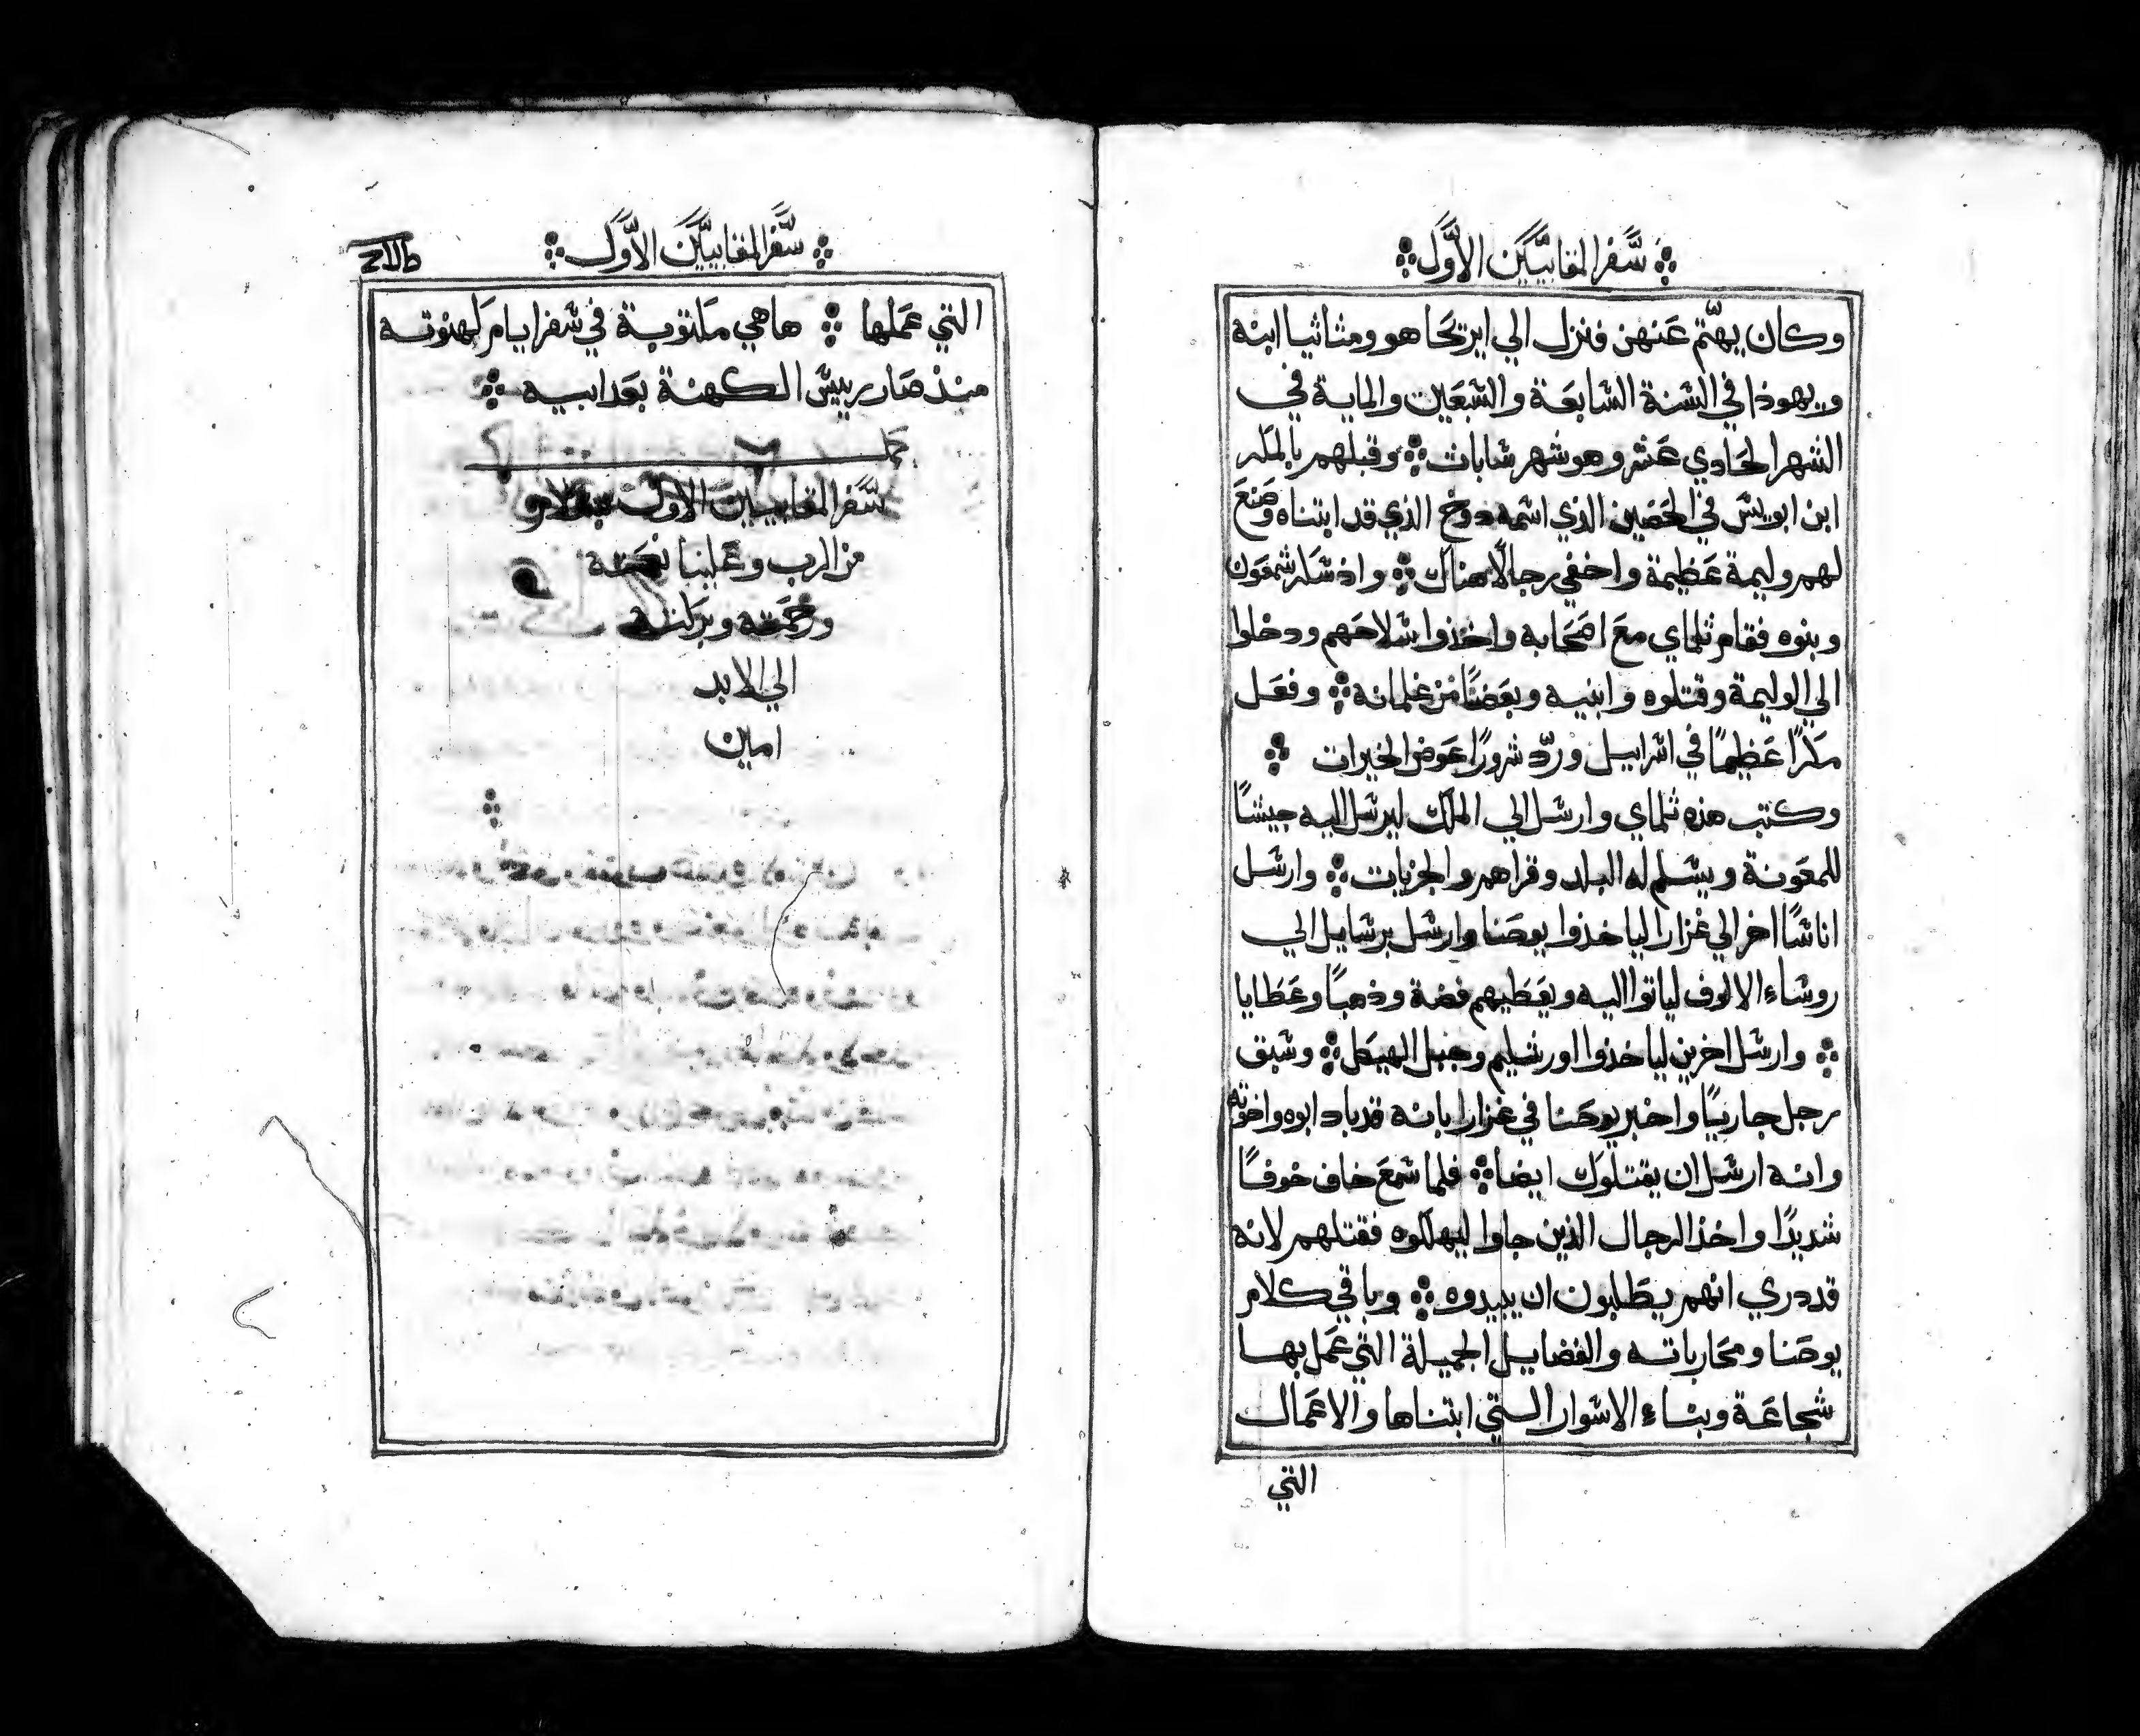 سفر المقابيين الاول
وكان يهتم عنهن فنزل الي ايريحا هو ومتاثيا ابنه
ويهوذا في السنة السابعة والسبعين والماية في
الشهر الحادي عشر وهو شهر شابات وقبلهم بالمكر
ابن ابويس في الحصين الذي اسمه دوخ الذي قد ابتناه وصنع
لهم وليمة عظيمة واخفي رجالا هناك واذ سكر شمعون
وبنوه فقام تلماي مع اصحابه واخذوا سلاحهم ودخلوا
الي الوليمة وقتلوه وابنيه وبعضا من غلمانه وفعل
مكرا عظيما في اسراييل ورد شرورا عوض الخيرات
وكتب هذه تلماي وارسل الي الملك ليرسل اليه جيشا
للمعونة ويسلم له البلد وقراهم والجزيات وارسل
اناسا اخر الي غزارا لياخذوا يوحنا وارسل برسايل الي
روساء الالوف لياتوا اليه ويعطيهم فضة وذهبا وعطايا
وارسل اخرين لياخذوا اورشليم وجبل الهيكل وسبق
رجل جاريا واخبر يوحنا في غزارا بانه قد باد ابوه واخوته
وانه ارسل ان يقتلوك ايضا فلما سمع خاف خوفا
شديدا واخذ الرجال الذين جاوا ليهلكوه فقتلهم لانه
قد دري انهم يطلبون ان يبيدوه وباقي كلام
يوحنا ومحارباته والفضايل الجميلة التي عمل بها
شجاعة وبناء الاسوار التي ابتناها والاعمال
التي
سفر المقابيين الاول
التي عملها هاهي مكتوبة في سفر ايام كهنوته
منذ صار رييس الكهنة بعد ابيه
كمل
سفر المقابيين الاول بسلام
من الرب وعلينا نعمته
ورحمته وبركته
الي الابد
امين